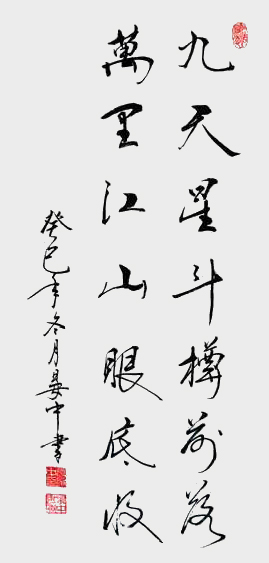 九天星斗樽前落
萬里江山眼底收
癸巳年冬月晏中書